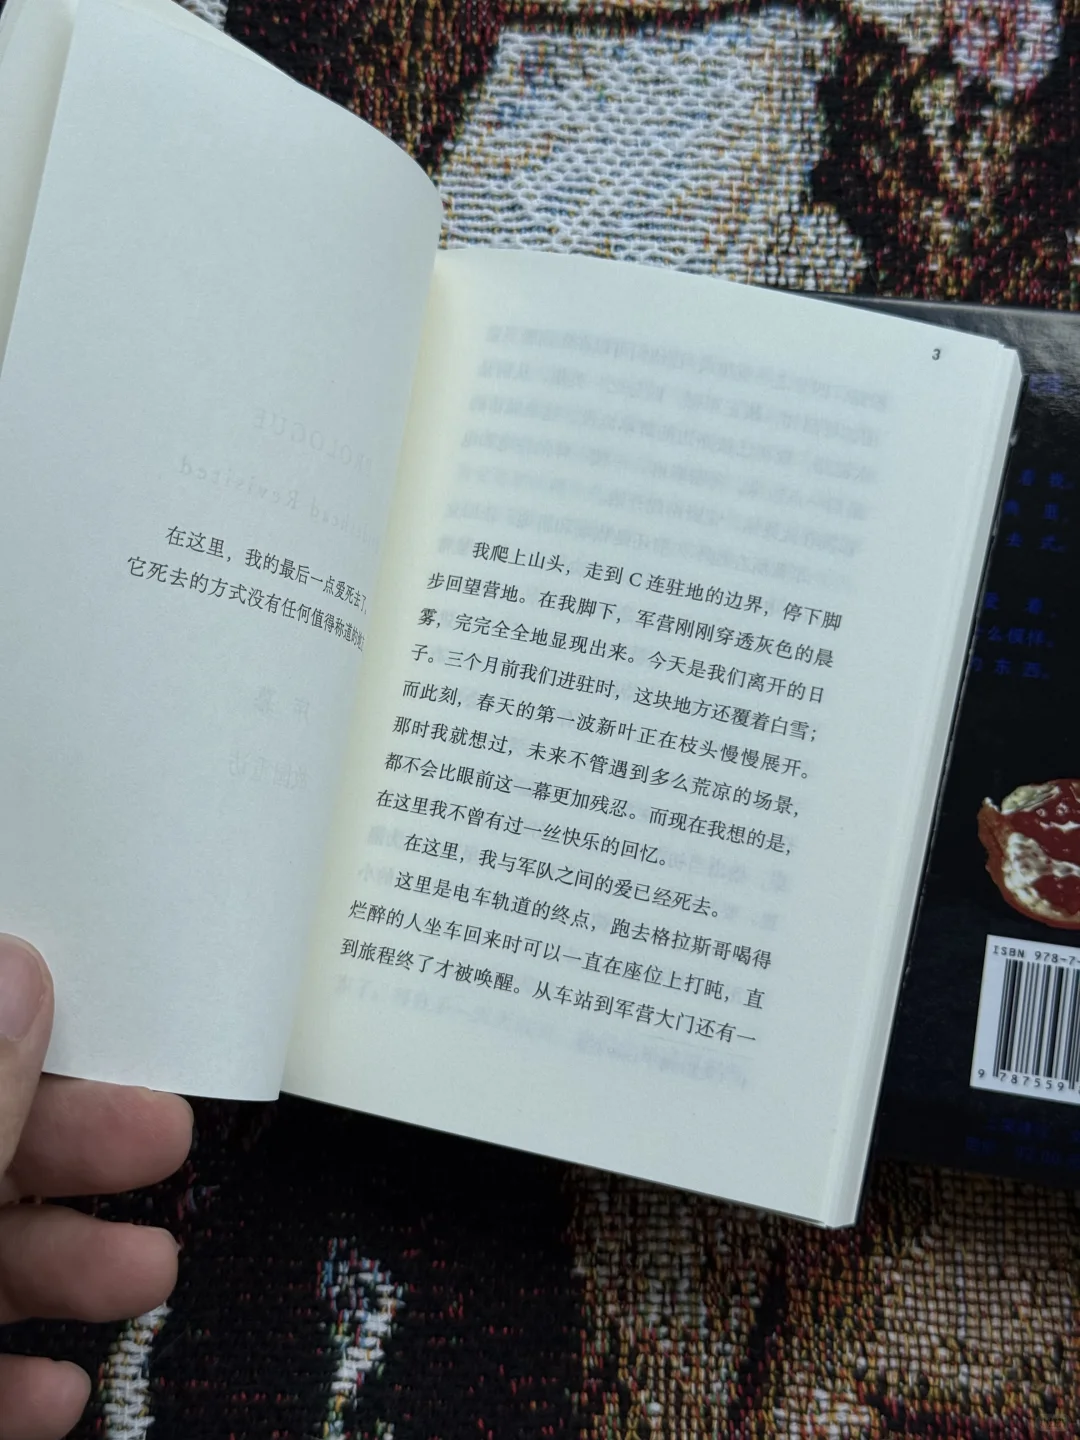 在这里，我的最后一点爱死去了，
它死去的方式没有任何值得称道的地
3
我爬上山头，走到 C 连驻地的边界，停下脚
步回望营地。在我脚下，军营刚刚穿透灰色的晨
雾，完完全全地显现出来。今天是我们离开的日
子。三个月前我们进驻时，这块地方还覆着白雪；
而此刻，春天的第一波新叶正在枝头慢慢展开。
那时我就想过，未来不管遇到多么荒凉的场景，
都不会比眼前这一幕更加残忍。而现在我想的是，
在这里我不曾有过一丝快乐的回忆。
在这里，我与军队之间的爱已经死去。
这里是电车轨道的终点，跑去格拉斯哥喝得
烂醉的人坐车回来时可以一直在座位上打盹，直
到旅程终了才被唤醒。从车站到军营大门还有一
去 式。
爱 着，
么模样。
东 西。
ISBN 978-7-
9 787559